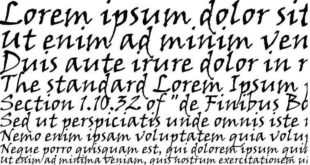 Lorem ipsum dolor sit
Ut enim ad minim ven
Duis aute irure dolor in
The standard Lorem Ipsum
Section 1.10.32 of "de Finibus Bo
Sed ut perspiciatis unde omnis iste
Nemo enim ipsam voluptatem quia volu
Neque porro quisquam est, qui dolorem ipsum qui
ut enim ad minima veniam, quis nostrum exercitationem u